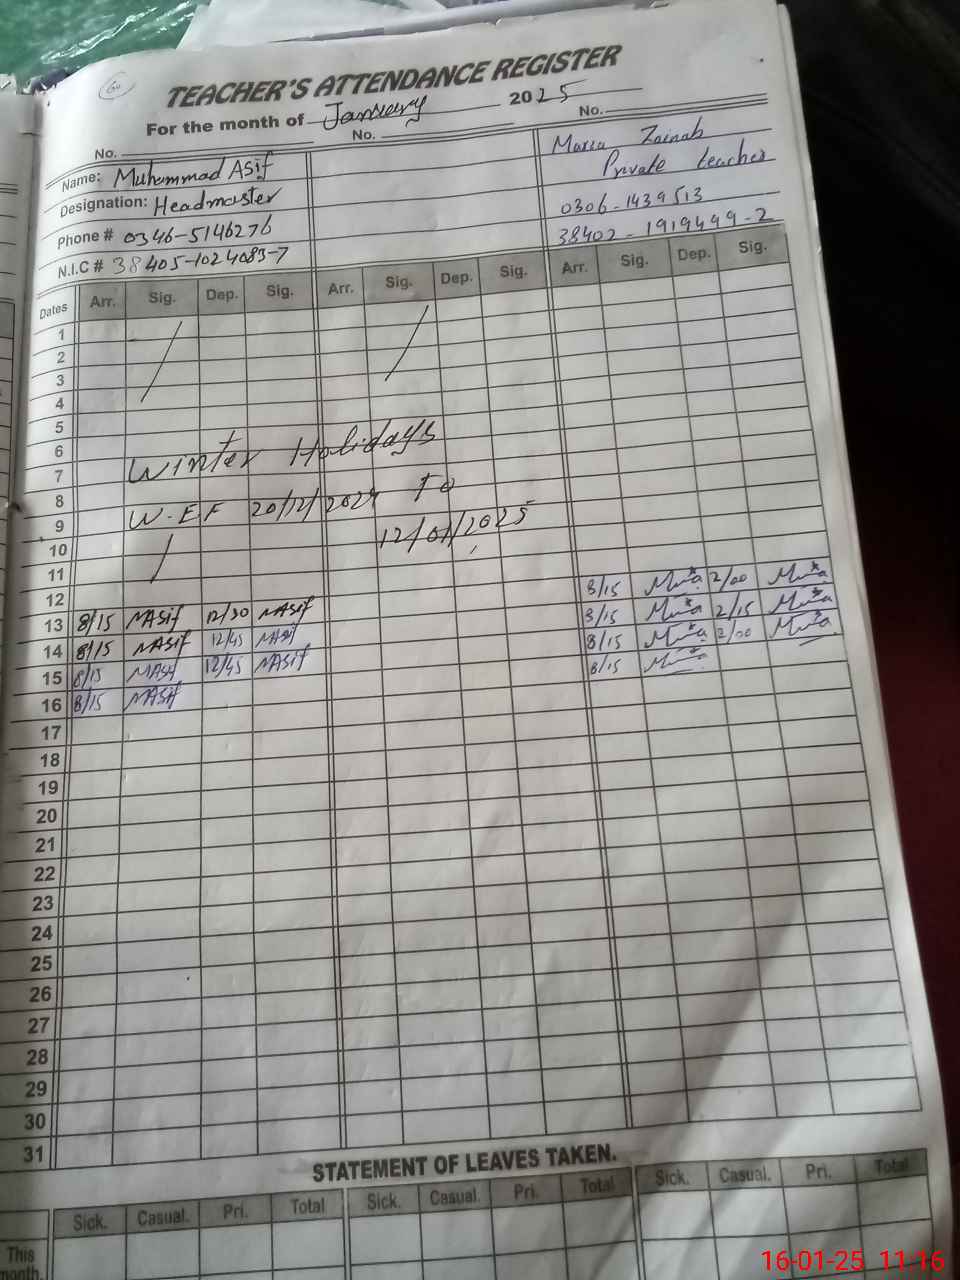 60
TEACHER'S ATTENDANCE REGISTER
For the month of January 2025
No. No. No.
Name: Muhammad Asif Maria Zainab
Designation: Headmaster Private teacher
Phone # 0346-5146276 0306-1439513
N.I.C # 38405-1024083-7 38402-1919499-2
Dates Arr. Sig. Dep. Sig. Arr. Sig. Dep. Sig. Arr. Sig. Dep. Sig.
1
2
3
4
5
6
Winter Holidays
7
8
W.E.F 20/12/2024 To
9
12/01/2025
10
11
12
13 8/15 MAsif 12/30 MAsif 8/15 2/00
14 8/15 MAsif 12/45 MAsif 8/15 2/15
15 8/15 MAsif 12/45 MAsif 8/15 2/00
16 8/15 MAsif 8/15
17
18
19
20
21
22
23
24
25
26
27
28
29
30
31
STATEMENT OF LEAVES TAKEN.
Sick. Casual. Pri. Total Sick. Casual. Pri. Total Sick. Casual. Pri. Total
This
month.
16-01-25 11:16